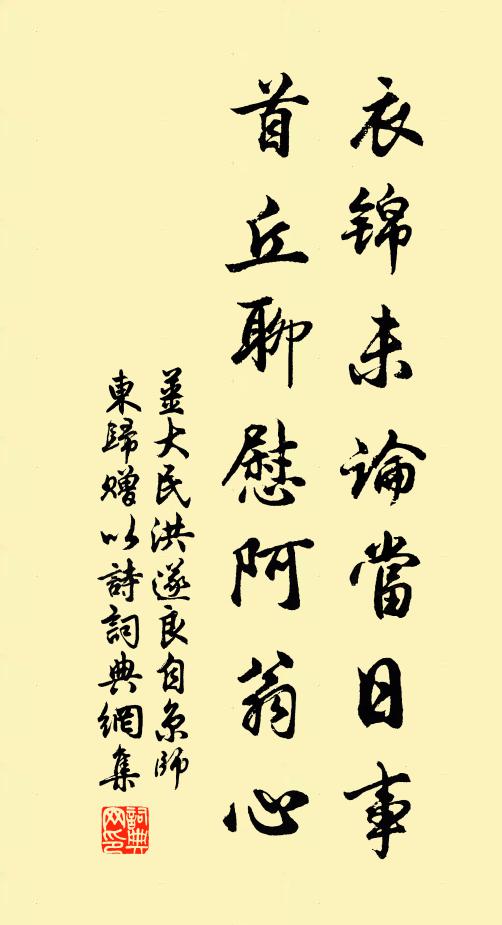 衣錦未論當日事
首丘聊慰阿翁心
薑大民洪遂良自京師
東歸贈以詩詞典網集
詞典網印